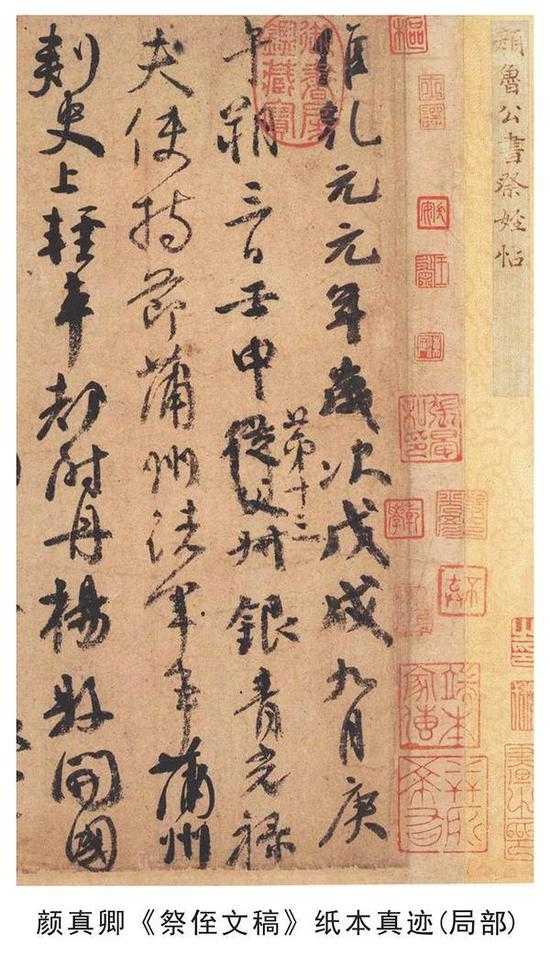 顏魯公書祭姪帖
維乾元元年歲次戊戌九月庚
午朔三日壬申第十三叔銀青光祿
夫使持節蒲州諸軍事蒲州
刺史上輕車都尉丹楊縣開國
御書房鑑藏寶
颜真卿《祭侄文稿》纸本真迹(局部)